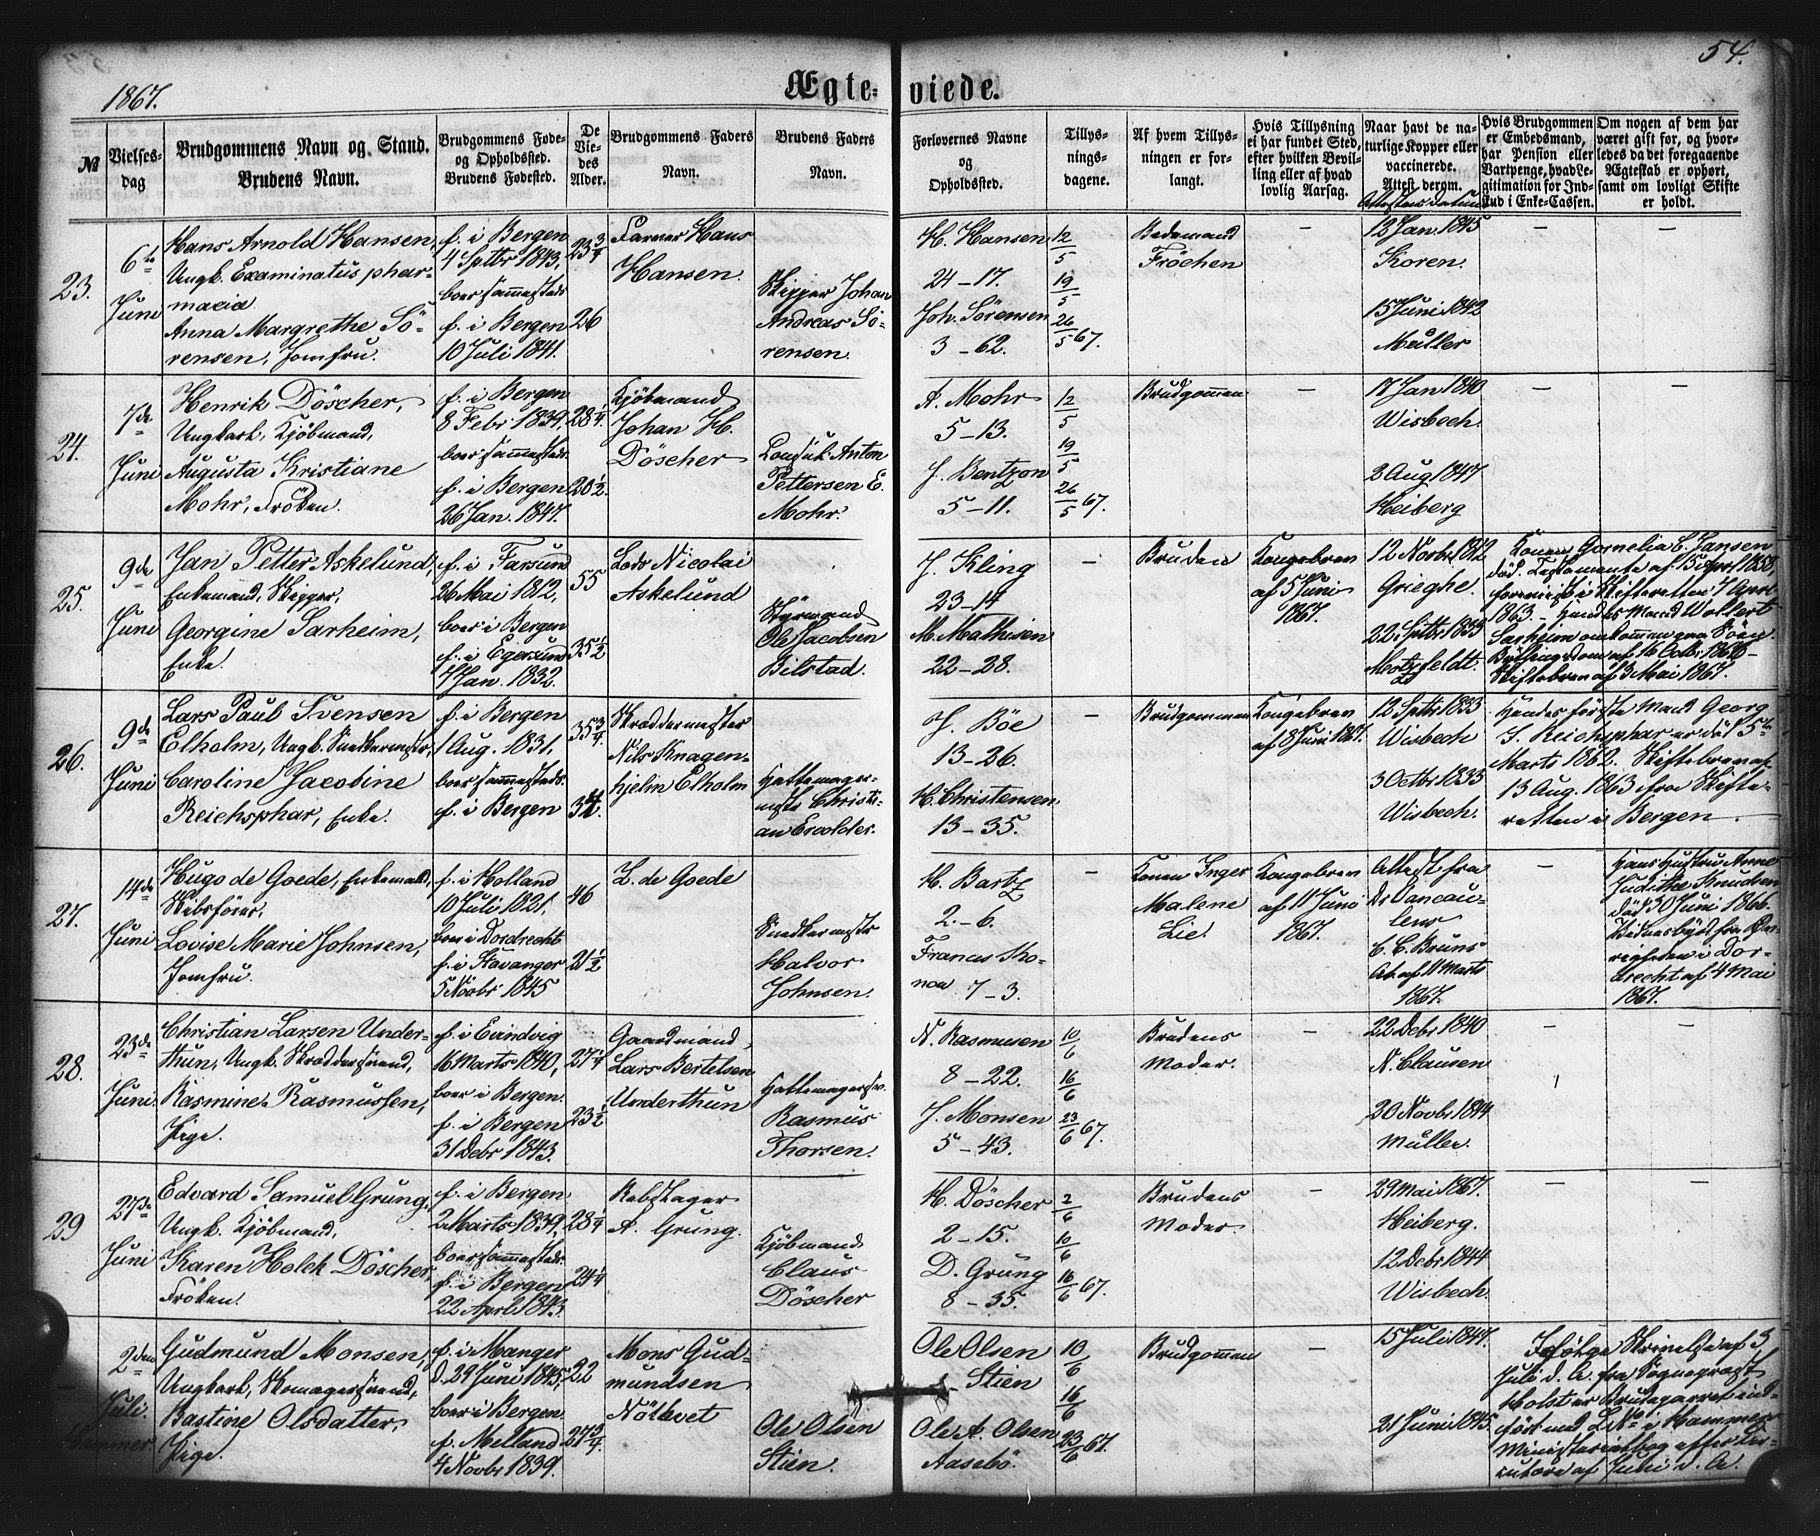 1867.
Ægte-
viede.
54.
№
Vielses-
dag
Brudgommens Navn og Stand.
Brudens Navn.
Brudgommens Føde-
og Opholdssted.
Brudens Fødested.
De
Vie-
des
Alder.
Brudgommens Faders
Navn.
Brudens Faders
Navn.
Forlovernes Navne
og
Opholdssted.
Tillys-
nings-
dagene.
Af hvem Tillys-
ningen er for-
langt.
Hvis Tillysning
ei har fundet Sted,
efter hvilken Bevil-
ling eller af hvad
lovlig Aarsag.
Naar havt de na-
turlige Kopper eller
vaccinerede.
Attest derom.
Attestens datum
Hvis Brudgommen
er Embedsmand,
har Pension eller
Vartpenge, hvad Le-
gitimation for Ind-
skud i Enke-Cassen.
Om nogen af dem har
været gift før, og hvor-
ledes da det foregaaende
Ægteskab er ophørt,
samt om lovligt Skifte
er holdt.
23.
6te
Juni
Hans Arnold Hansen,
Ungk. Examinatus phar-
macia
Anna Margrethe Sö-
rensen, Jomfru.
f. i Bergen
4 Septbr 1843,
boer sammesteds
f. i Bergen
10 Juli 1841.
23 3/4
26
Farver Hans
Hansen.
Skipper Johan
Andreas Sö-
rensen.
H. Hansen
24-17.
Joh. Sörensen
3-62.
12/5
19/5
26/5 67.
Bedemand
Fröchen
-
12 Jan 1845
Koren.
15 Juni 1842
Müller
-
-
24.
7de
Juni
Henrik Döscher,
Ungkarl, Kjöbmand,
Augusta Kristiane
Mohr, Fröken.
f. i Bergen
8 Febr 1839,
boer sammesteds.
f. i Bergen
26 Jan. 1847.
28 1/4.
20 1/2.
Kjöbmand
Johan H.
Döscher
Consul Anton
Pettersen E.
Mohr.
A. Mohr
5-13.
J. Bentzon
5-11.
12/5
19/5
26/5 67.
Brudgommen
-
17 Jan 1840
Wisbech.
2 Aug 1847
Heiberg
-
-
25.
9de
Juni
Jan Petter Askelund,
Enkemand, Skipper,
Georgine Sarheim,
Enke.
f. i Farsund
26 Mai 1812,
boer i Bergen
f. i Egersund
1 Jan. 1832.
55
35 1/2
Lods Nicolai
Askelund
Styrmand
Ole Jacobsen
Bilstad.
J. Kling
23-14
M. Mathisen
22-28.
-
Bruden
Kongebrev
af 5 Juni
1867.
12 Novbr 1812
Grieghe.
22 Septbr 1833
Mortzfeldt.
Konen Cornelia C. Jansen
död. Testamente af 15 April 1858,
foreviist i Skifteretten 7 April
1863. - Hendes Mand Wollert
Sarheim omkommen paa Söen
Bjöllings Dom af 16 Octbr 1866 -
Skiftebrev af 3 Mai 1867.
26.
9de
Juni
Lars Paul Svensen
Elholm, Ungk. Snedkermestr,
Caroline Jacobine
Reichsphar, Enke.
f. i Bergen
1 Aug. 1831.
boer sammesteds.
f. i Bergen
35 3/4.
34.
Skræddermester
Nils Knagen-
hjelm Elholm
Hattemager-
mstr Christi-
an Ercolder.
J. Böe
13-26.
H. Christensen
13-35.
-
Brudgommen
Kongebrev
af 8 Juni 1867.
12 Septbr 1833
Wisbech
3 Octbr 1833
Wisbech.
Hendes förste Mand Georg
S. Reichsphar er död 5te
Marts 1862. Skiftebrev af
13 Aug. 1863 fra Skifte-
retten i Bergen.
27.
14de
Juni
Hugo de Goede, Enkemand,
Skibsförer,
Lovise Marie Johnsen,
Jomfru.
f. i Holland
10 Juli 1821,
boer i Dordrecht
f. i Stavanger
5 Novbr 1845
46
21 1/2
L. de Goede
Snedkermstr
Halvor
Johnsen.
H. Bartz
2.-6.
Frances Tho-
nou 7-3.
-
Konen Inger
Malene
Lie.
Kongebrev
af 11 Juni
1867.
Attest fra
Dr Vancau-
lew
C. C. Bruns
At af 11 Marts
1867.
-
Hans Hustru Anne
Judithe Knudsen
död 30 Juni 1866.
Vidnesbyrd fra Öv-
righeden i Dor-
drecht af 4 Mai
1867.
28.
23de
Juni.
Christian Larsen Under-
thun, Ungk. Skræddersvend,
Rasmine Rasmussen,
Pige.
f. i Evindvig
16 Marts 1840,
boer i Bergen.
f. i Bergen
31 Debr 1843.
27 1/4
23 1/2
Gaardmand,
Lars Bertelsen
Underthun
Hattemagersv.
Rasmus
Thorsen.
N. Rasmussen
8-22.
J. Monsen
5-43.
10/6
16/6
23/6 67.
Brudens
Moder.
-
22 Debr 1840
N. Clausen
20 Novbr 1844
Müller.
-
-
29
27de
Juni
Edvard Samuel Grung,
Ungk. Kjöbmand,
Karen Holck Döscher,
Fröken.
f. i Bergen
2 Marts 1839,
boer sammesteds.
f. i Bergen
22 April 1843.
28 1/4
24 1/4
Rebslager
A. Grung.
Kjöbmand
Claus
Döscher
H. Döscher
2-15.
D. Grung
8-35.
2/6
10/6
16/6 67.
Brudens
Moder.
-
29 Mai 1867.
Heiberg.
12 Debr 1844
Wisbech.
-
-
2den
Juli.
Hammer.
Gudmund Monsen,
Ungkarl, Skomagersvend,
Bastine Olsdatter,
Pige.
f. i Manger
d. 29 Juni 1845,
boer i Bergen
f. Melland
4 Novbr 1839.
22
27 3/4.
Mons Gud-
mundsen
Nötlevet
Ole Olsen
Stien.
Ole Olsen
Stien
Ole A. Olsen
Aasebö.
10/6
16/6
23/6 67.
Brudgommen
-
15 Juli 1847.
21 Juni 1845.
Ifölge Skrivelse af 3
Juli d. A. fra Sognepræst
Holst er Brudeparret ind-
fört med L. No 1 i Hammer
Ministerialbog efter
af Juli d. A.